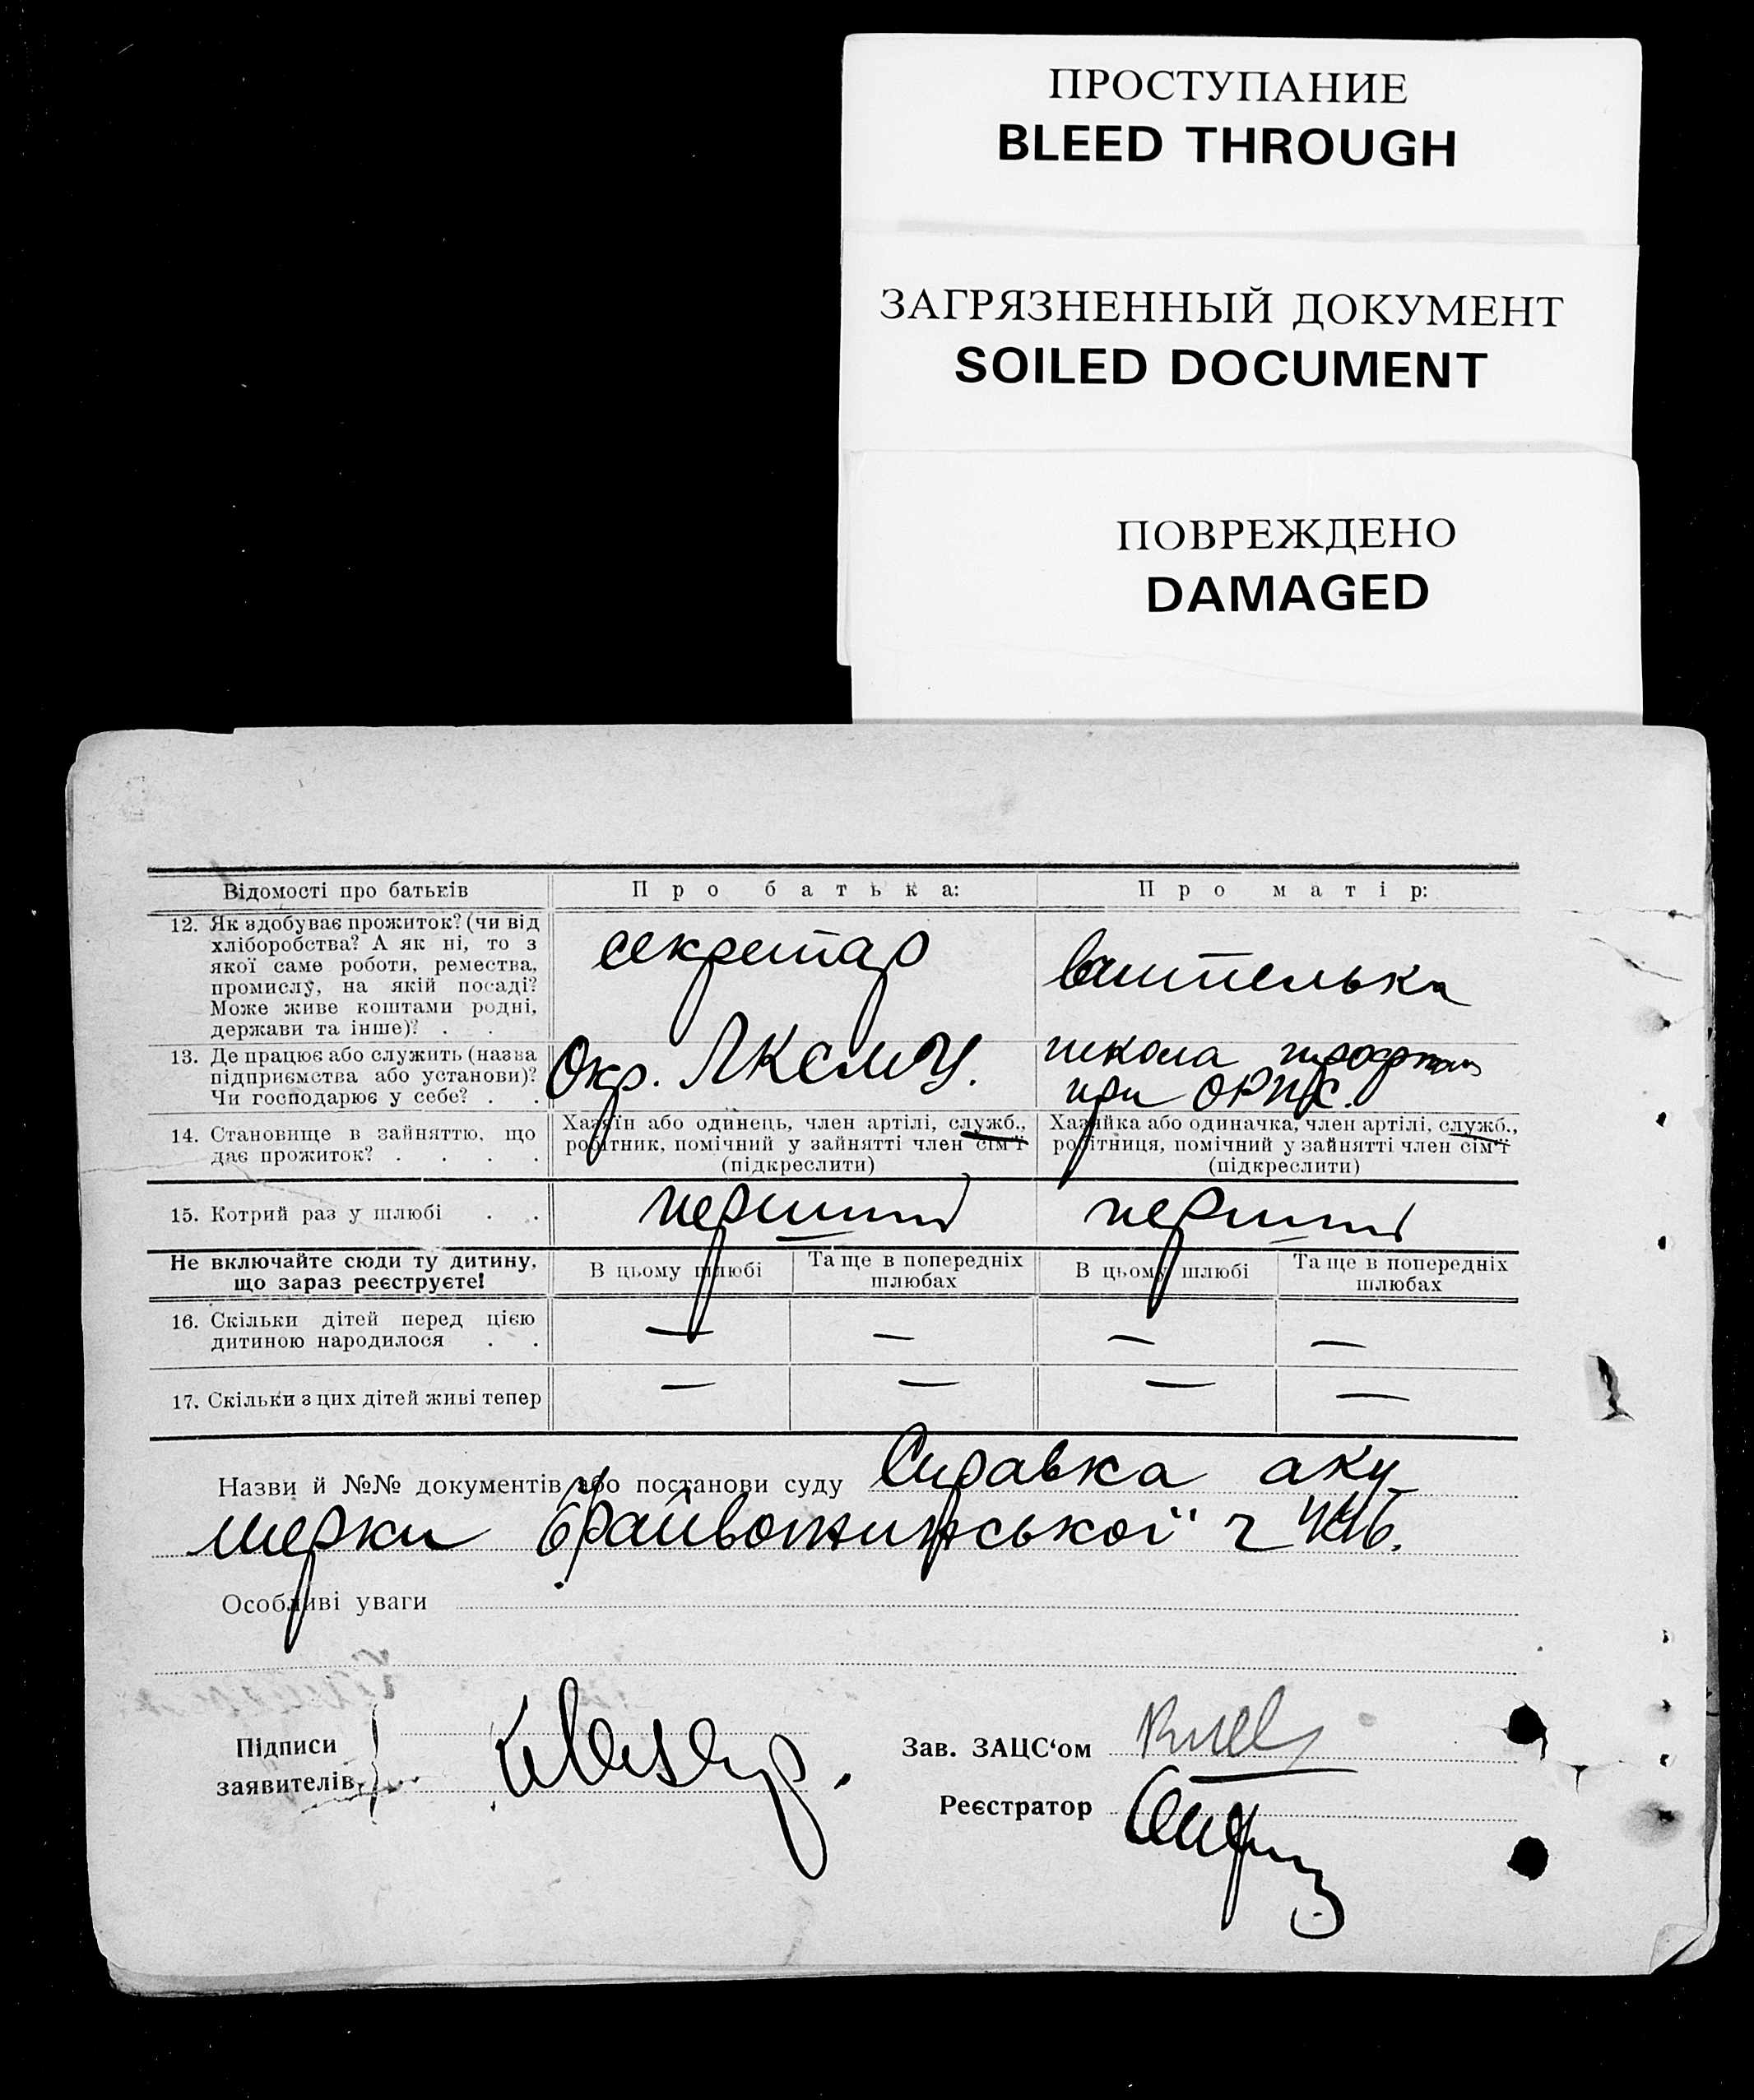 ПРОСТУПАНИЕ
BLEED THROUGH
ЗАГРЯЗНЕННЫЙ ДОКУМЕНТ
SOILED DOCUMENT
ПОВРЕЖДЕНО
DAMAGED
Відомості про батьків
Про батька:
Про матір:
12. Як здобуває прожиток? (чи від
хліборобства? А як ні, то з
якої саме роботи, ремества,
промислу, на якій посаді?
Може живе коштами родні,
держави та інше)? . .
секретар
вчителька
13. Де працює або служить (назва
підприємства або установи)?
Чи господарює у себе? . .
Окр. ЛКСМУ.
школа
при
14. Становище в зайняттю, що
дає прожиток? . . . .
Хазяїн або одинець, член артілі, служб.,
робітник, помічний у зайнятті член сім'ї
(підкреслити)
Хазяйка або одиначка, член артілі, служб.,
робітниця, помічний у зайнятті член сім'ї
(підкреслити)
15. Котрий раз у шлюбі . .
перший
перший
Не включайте сюди ту дитину,
що зараз реєструєте!
В цьому шлюбі
Та ще в попередніх
шлюбах
В цьому шлюбі
Та ще в попередніх
шлюбах
16. Скільки дітей перед цією
дитиною народилося . .
— — — —
17. Скільки з цих дітей живі тепер
— — — —
Назви й №№ документів або постанови суду Справка аку
шерки ч
Особливі уваги
Підписи
заявителів
Зав. ЗАЦС‘ом
Реєстратор